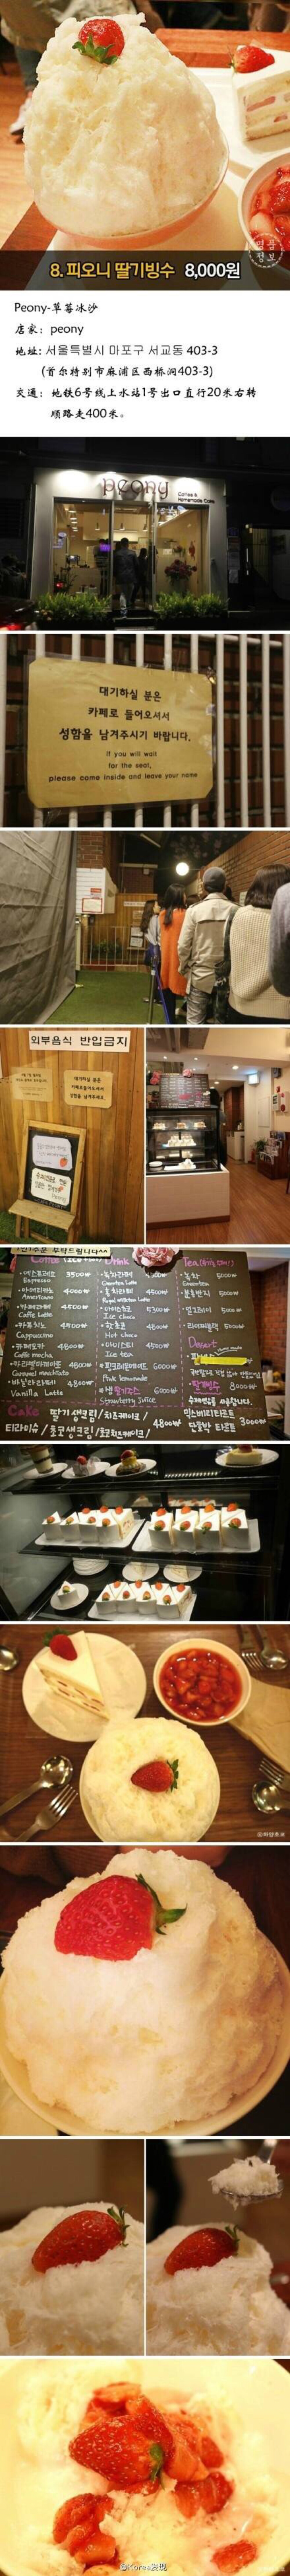 명품
정보
8. 피오니 딸기빙수 8,000원
Peony-草莓冰沙
店家：peony
地址: 서울특별시 마포구 서교동 403-3
(首尔特别市麻浦区西桥洞403-3)
交通：地铁6号线上水站1号出口直行20米右转
顺路走400米。
peony
Coffee &
Homemade Cake
대기하실 분은
카페로 들어오셔서
성함을 남겨주시기 바랍니다.
If you will wait
for the seat,
please come inside and leave your name
외부음식 반입금지
대기하실 분은
카페로들어오셔서
성함을 남겨주세요.
Coffee
Drink
Tea
Espresso 3500₩
아메리카노 4000₩
Americano
카페라떼 4500₩
Caffe Latte
카푸치노 4500₩
Cappuccino
카페모카 4800₩
Caffe mocha
카라멜마끼아또 4800₩
Caramel macchiato
바닐라라떼 4800₩
Vanilla Latte
녹차라떼
Greentea Latte
홍차라떼 4500₩
Royal milktea Latte
아이스초코 5300₩
Ice choco
핫초코 4800₩
Hot choco
아이스티 4500₩
Ice tea
핑크레몬에이드 6000₩
Pink lemonade
생딸기쥬스 6000₩
Strawberry Juice
녹차 5000₩
Greentea
얼그레이 5000₩
5000₩
Dessert
딸기빙수 8000₩
Cake
딸기생크림 / 치즈케이크 / 4800₩
티라미슈 /
단호박 타르트 3000₩
@Korea发现